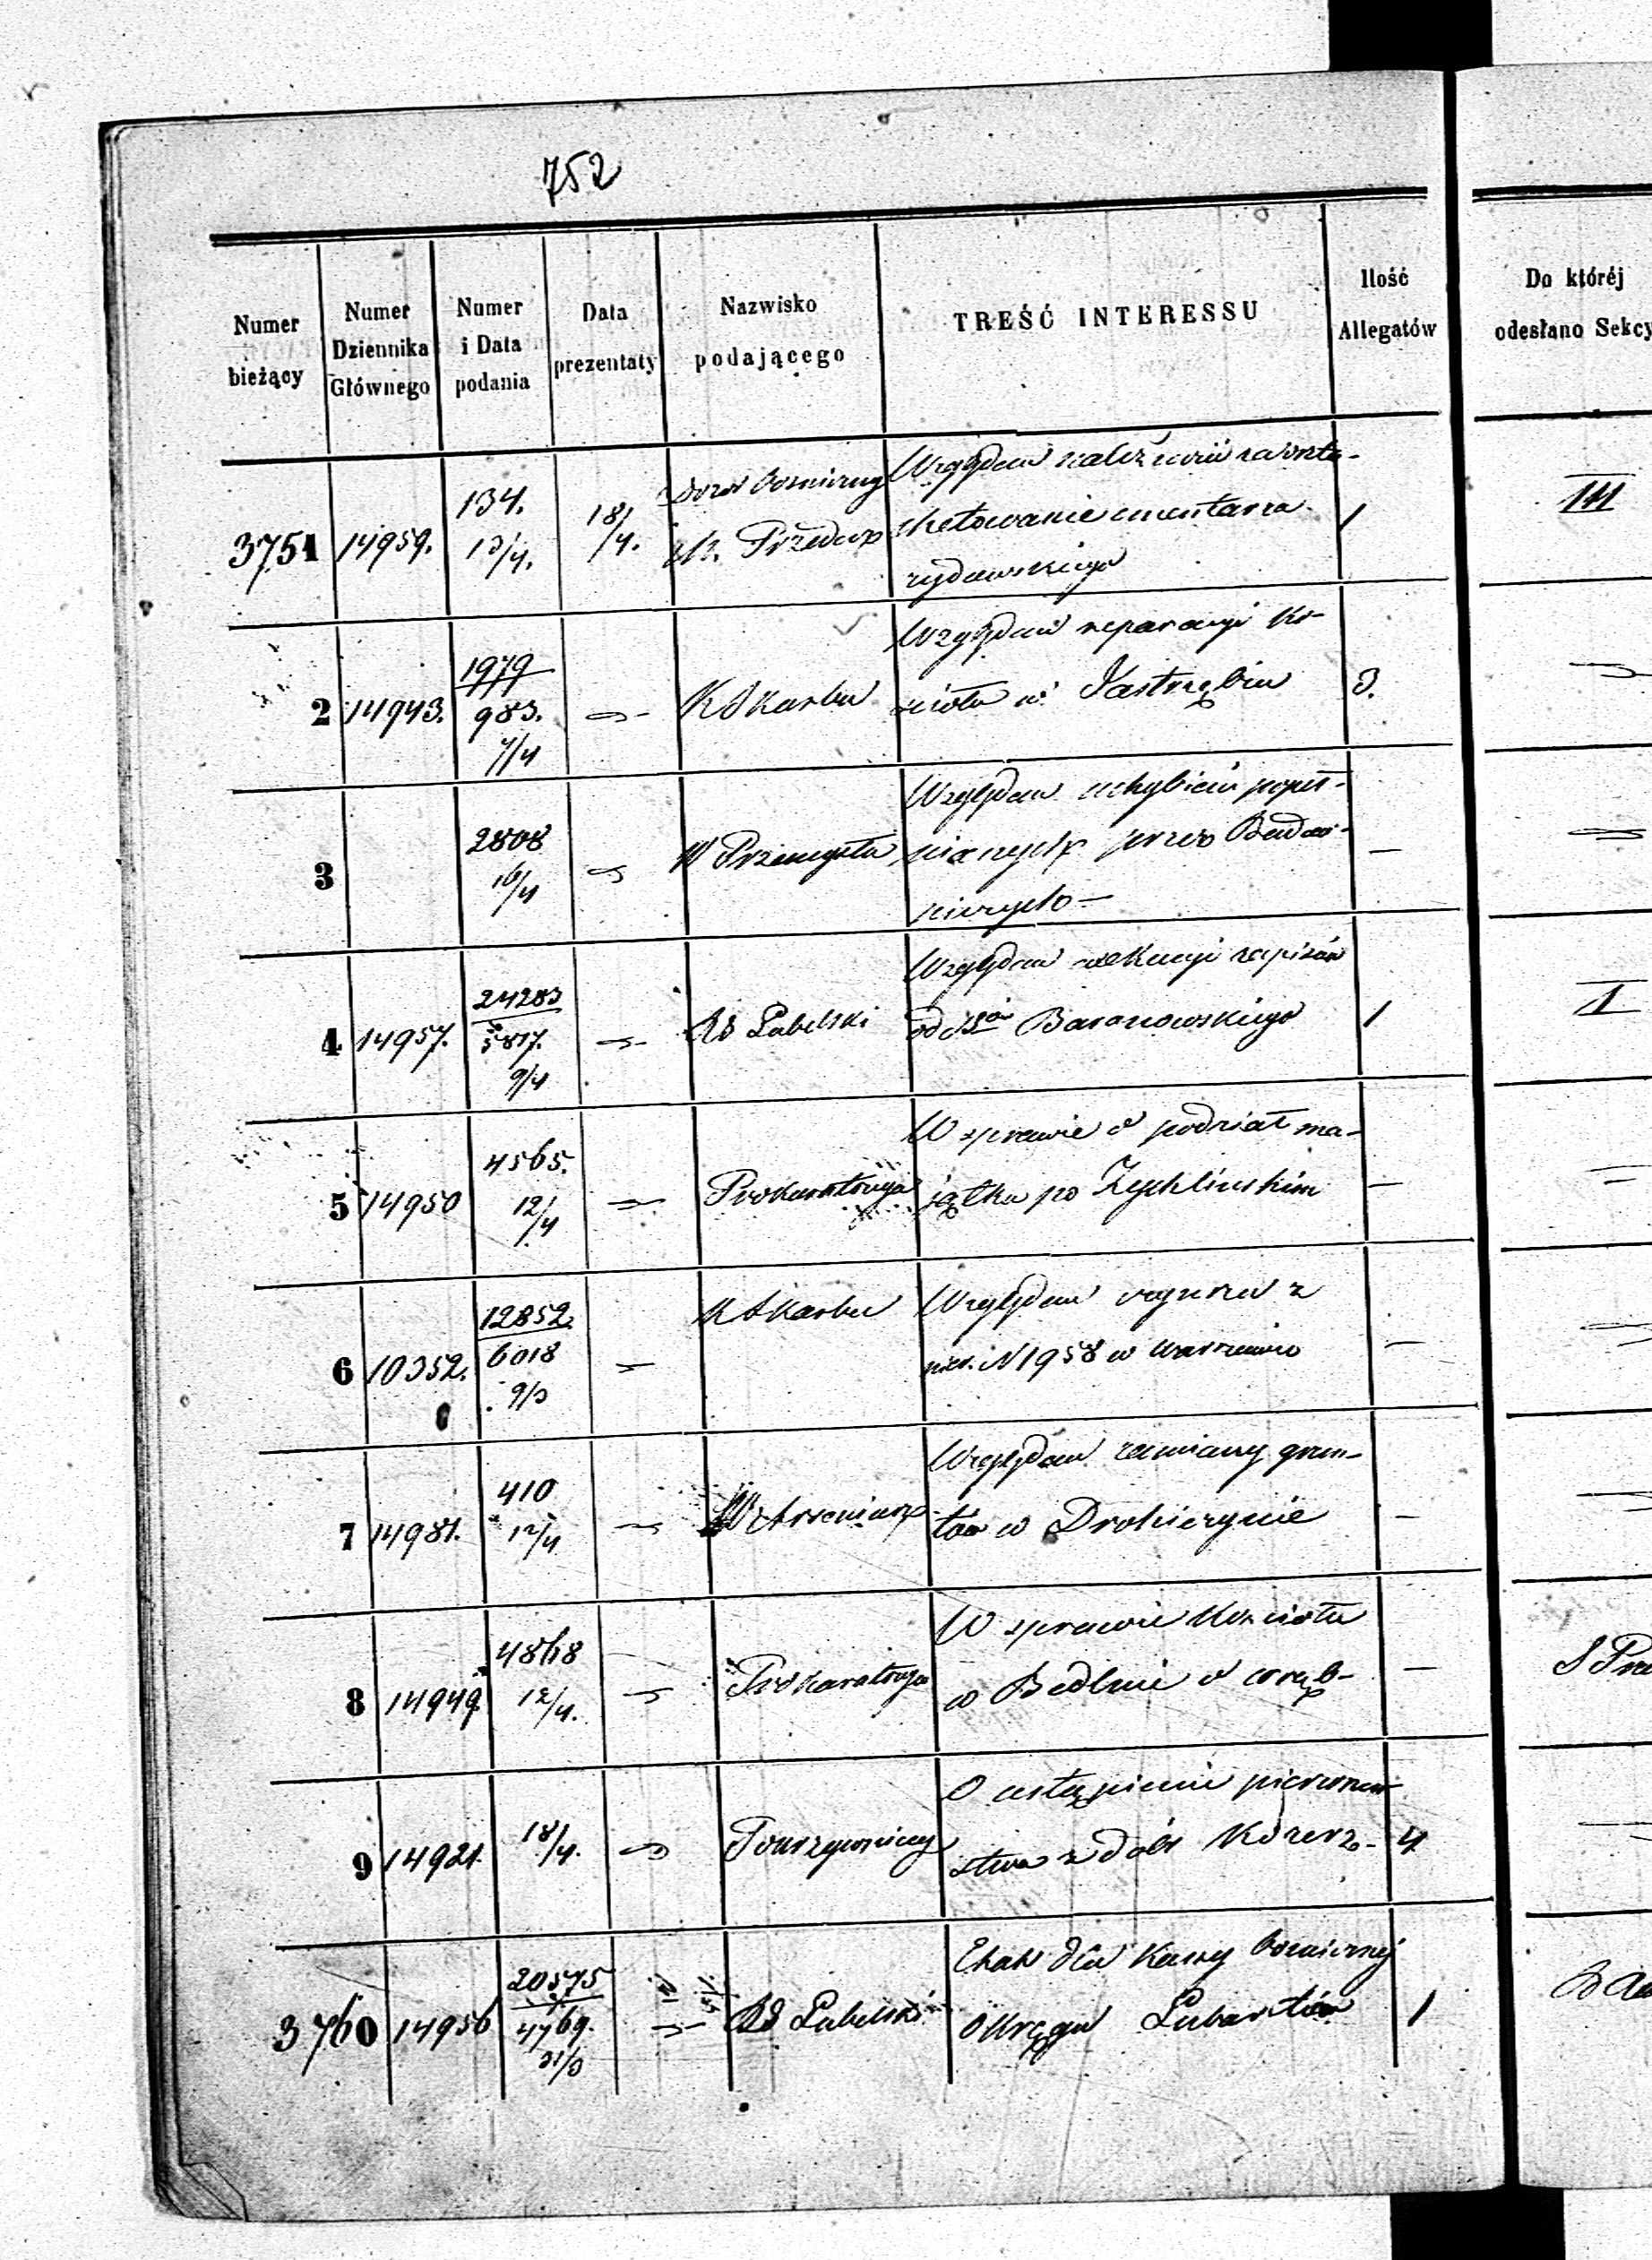 752
Numer bieżący
Numer Dziennika Głównego
Numer i Data podania
Data prezentaty
Nazwisko podającego
TREŚĆ INTERESSU
Ilość Allegatów
Do któréj odesłano Sekcy
3751 14959. 134. 13/4. 18/4. Dozór Bożniczny Względem należności za oszta-
m. Przedecz chetowanie cmentarza 1 III
żydowskiego
2 14943. 1979 983. 7/4 K Skarbu Względem reparacyi Ko-
ścioła w Jastrzębiu 3.
3 2808 16/4 W Przemysłu Względem uchybień popeł-
nionych przez Budow-
niczych —
4 14957. 24283 5817. 9/4 RG Lubelski Względem exekucyi zapisów
od Baranowskiego 1 II
5 14950 4565. 12/4 Prokuratorya W sprawie o podział ma-
jątku po Zychlińskim —
6 10352. 12852. 6018 9/3 K Skarbu Względem czynszu z
N 1958 w Warszawie —
7 14981. 410 12/4 Względem zamiany grun-
tów w Drohiczynie —
8 14949. 4868 12/4. Prokuratorya W sprawie Kościoła
w Bedlnie o wrąb — S Pra
9 14921. 18/4. O ustąpienie pierwszeń-
stwa z dóbr 4
3760 14956 20575 4769. 31/3 RG Lubelski Etat dla Kassy Bożnicznej
Okręgu Lubartów 1